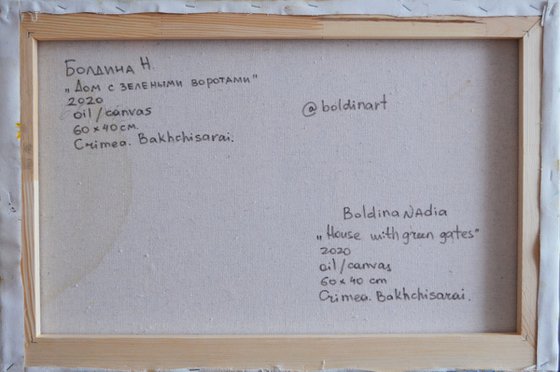 Болдина Н.
„Дом с зелеными воротами"
2020
oil/canvas
60×40 см.
Crimea. Bakhchisarai.
@boldinart
Boldina NAdia
„House with green gates"
2020
oil/canvas
60×40 cm
Crimea. Bakhchisarai.